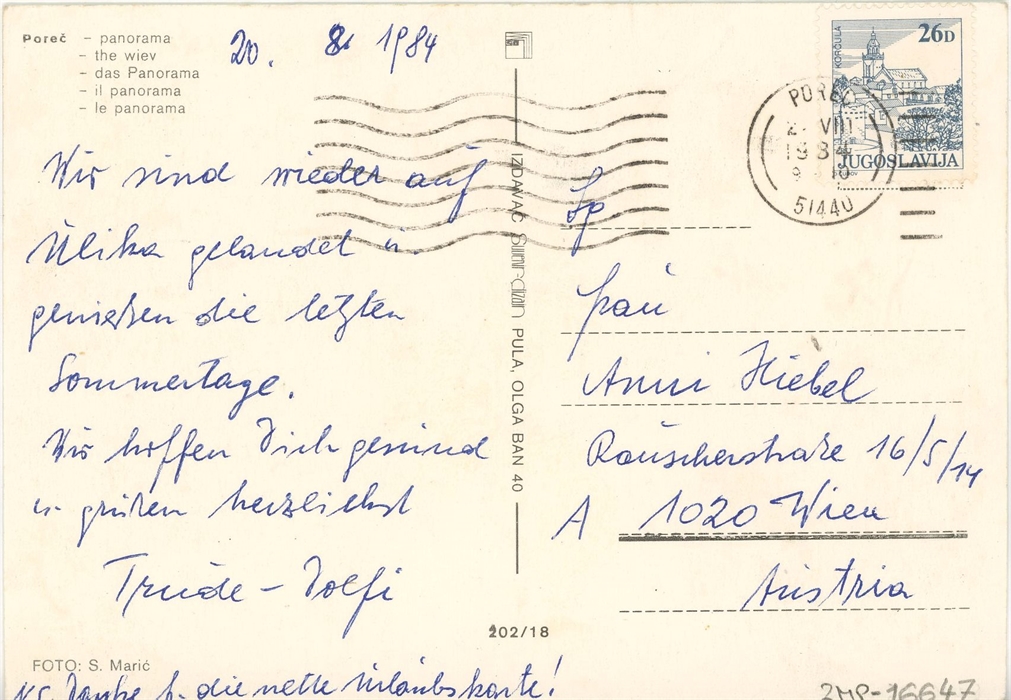 Poreč – panorama
– the wiev
– das Panorama
– il panorama
– le panorama
20. 8. 1984
KORČULA
26D
JUGOSLAVIJA
POREČ
VIII
1984
51440
Wir sind wieder auf
Ulika gelandet u.
genießen die letzten
Sommertage.
Wir hoffen Dich gesund
u. grüßen herzlichst
Trude - Dolfi
FOTO: S. Marić
Danke f. die nette Urlaubskarte!
IZDAVAČ PULA, OLGA BAN 40
202/18
Frau
Anni Hiebel
Rauscherstraße 16/5/14
A 1020 Wien
Austria
2MP-16647